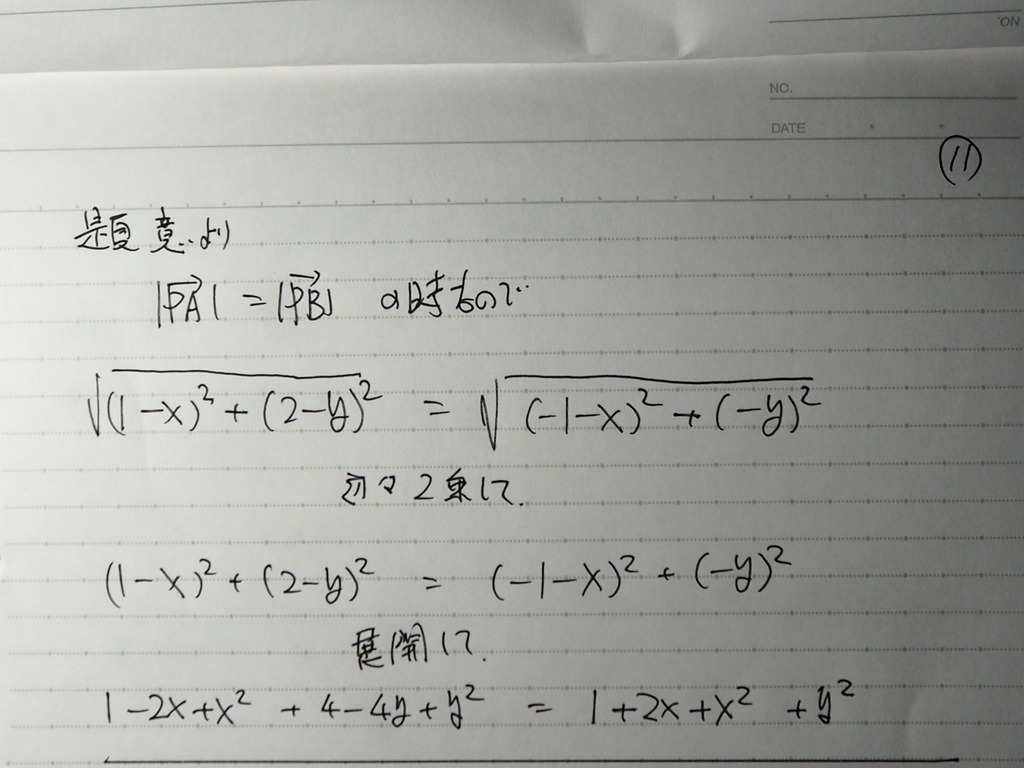 NO
NO.
DATE
⑪
題意より
|PA| = |PB| の時なので
√(1-x)² + (2-y)² = √(-1-x)² + (-y)²
2乗して.
(1-x)² + (2-y)² = (-1-x)² + (-y)²
展開して.
1-2x+x² + 4-4y+y² = 1+2x+x² + y²